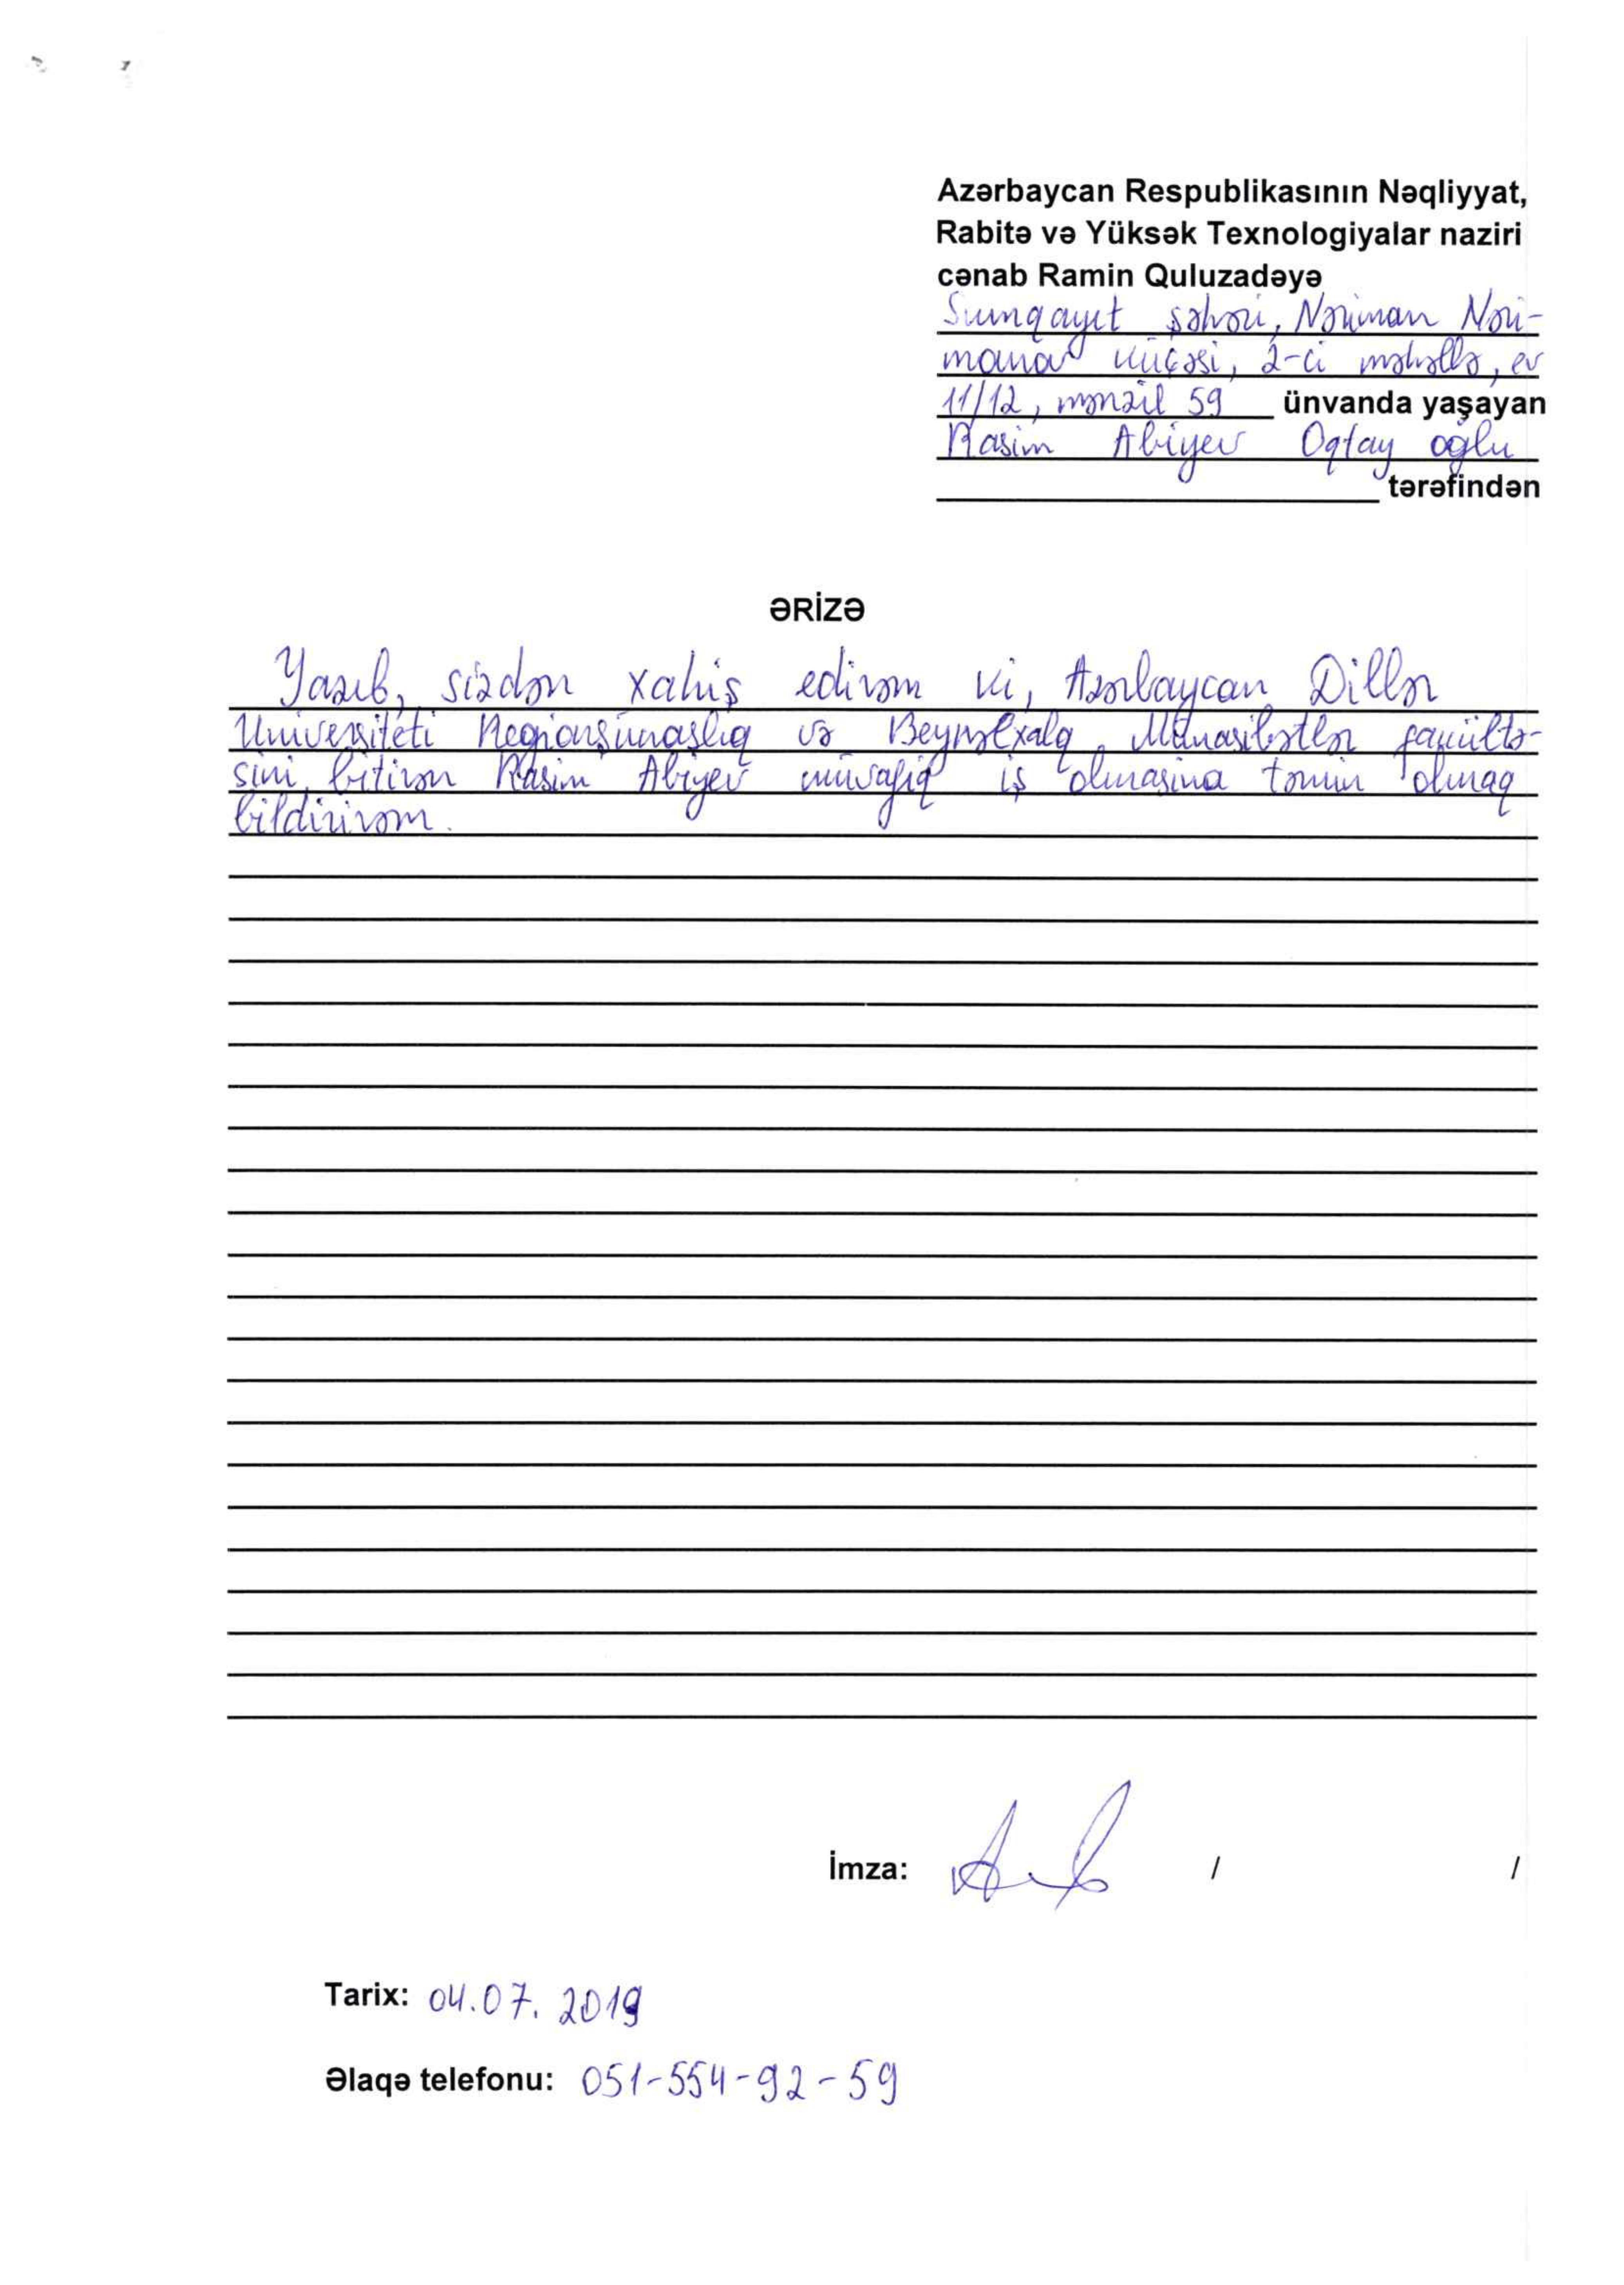 Azərbaycan Respublikasının Nəqliyyat,
Rabitə və Yüksək Texnologiyalar naziri
cənab Ramin Quluzadəyə
Sumqayıt şəhəri, Nəriman Nəri-
manov küçəsi, 2-ci məhəllə, ev
11/12, mənzil 59 ünvanda yaşayan
Rasim Abiyev Oqtay oğlu
tərəfindən
ƏRİZƏ
Yazıb, sizdən xahiş edirəm ki, Azərbaycan Dillər
Universiteti Regionşünaslıq və Beynəlxalq Münasibətlər fakültə-
sini bitirən Rasim Abiyev müvafiq iş olmasına təmin olmaq
bildirirəm.
İmza: / /
Tarix: 04.07.2019
Əlaqə telefonu: 051-554-92-59